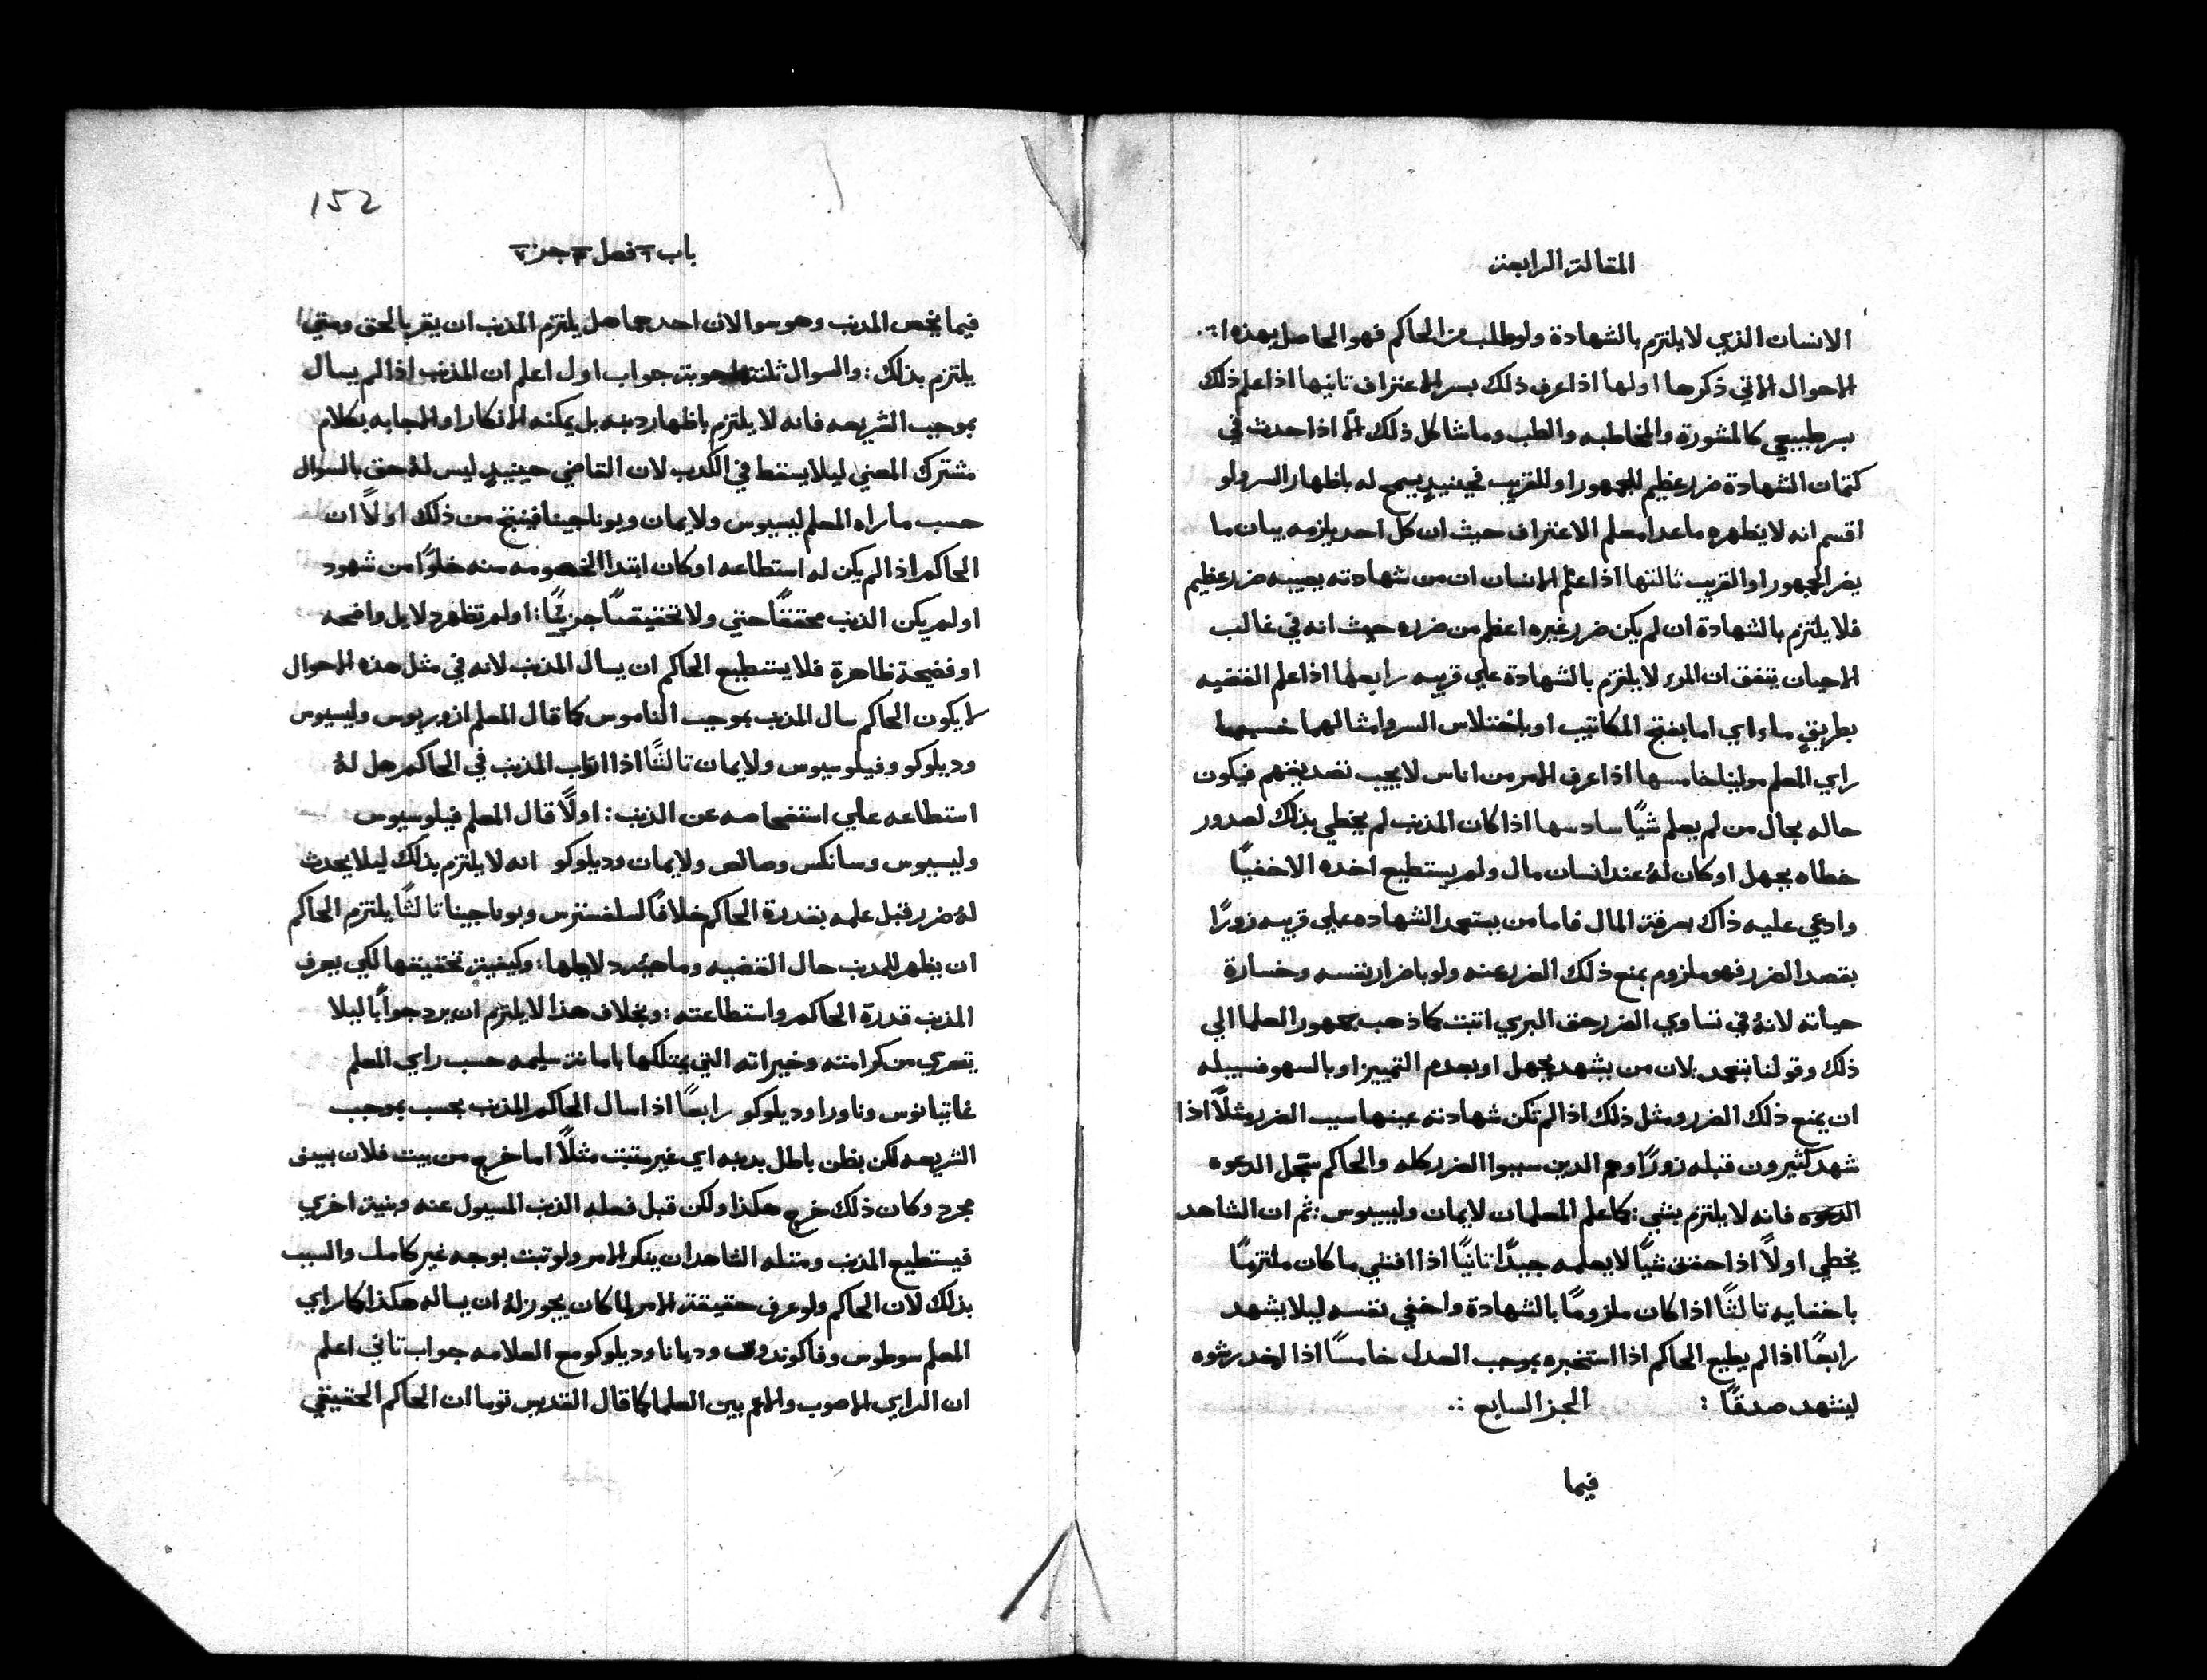 المقالة الرابعة
الانسان الذي لا يلتزم بالشهادة ولو طلب من الحاكم فهو الحاصل بهذه
الاحوال الاتي ذكرها اولها اذا عرف ذلك بسر الاعتراف تانيها اذا علم ذلك
بسر طبيعي كالمشورة والمخاطبه والطب وما شاكل ذلك الا اذا حدث في
كتمان الشهادة ضرر عظيم للجمهور او للقريب فحينيدٍ يسمح له باظهار السر ولو
اقسم انه لا يظهره ما عدا معلم الاعتراف حيث ان كل احد يلزمه بيان ما
يضر الجمهور او القريب تالتها اذا علم الانسان ان من شهادته يصيبه ضرر عظيم
فلا يلتزم بالشهادة ان لم يكن ضرر غيره اعظم من ضرره حيث انه في غالب
الاحيان يتفق ان المرء لا يلتزم بالشهادة علي قريبه رابعها اذا علم القضيه
بطريقٍ ما اي اما بفتح المكاتيب او باختلاس السر وامثالهما حسبما
راي المعلم مولينا خامسها اذا عرف الامر من اناس لا يجب تصديقهم فيكون
حاله بحال من لم يعلم شيًا سادسها اذا كان المذنب لم يخطي بذلك لصدور
خطاه بجهل او كان لهُ عند انسان مال ولم يستطيع اخده الا خفيًا
وادعي عليه ذاك بسرقة المال فاما من يتعمد الشهاده علي قريبه زورًا
بقصد الضرر فهو ملزوم بمنع ذلك الضرر عنه ولو باضرار نفسه وخسارة
حياته لانهُ في تساوي الضرر حق البري اتبت كما ذهب جمهور العلما الي
ذلك وقولنا بتعمد: لان من يشهد بجهل او بعدم التمييز او بالسهو فسبيله
ان يمنع ذلك الضرر ومثل ذلك اذا لم تكن شهادته عينها سبب الضرر مثلاً اذا
شهد كثيرون قبله زورًا وهم الدين سببوا الضرر كله والحاكم سجل الدعوه
الدعوه فانه لا يلتزم بشي: كما علم المعلمان لايمان وليسيوس: ثم ان الشاهد
يخطي اولاً اذا حقق شيًا لا يعلمه جيدًا تانيًا اذا افشي ما كان ملتزمًا
باخفايه تالثًا اذا كان ملزومًا بالشهادة واخفي نفسه ليلا يشهد
رابعًا اذا لم يطيع الحاكم اذا استخبره بموجب العدل خامسًا اذا اخد رشوه
ليشهد صدقًا : الجز السابع :.
فيما
152
باب ٢ فصل ٣ جز ٧
فيما يخص المدنب وهو سوالان احدهما هل يلتزم المذنب ان يقر بالحق ومتي
يلتزم بذلك: والسوال ثلثة اجوبة جواب اول اعلم ان المذنب اذا لم يسال
بموجب الشريعه فانه لا يلتزم باظهار دنبه بل يمكنه الانكار او المجابه بكلام
مشترك المعني ليلا يسقط في الكدب لان القاضي حينيدٍ ليس لهُ حق بالسوال
حسب ما راه المعلم ليسيوس ولايمان وبوناجينا فينتج من ذلك اولاً ان
الحاكم اذا لم يكن له استطاعه او كان ابتدا الخصومه منه خلوًا من شهود
او لم يكن الذنب محققًا حتي ولا تحقيقًا جزيًا: او لم تظهر دلايل واضحه
او فضيحة ظاهرة فلا يستطيع الحاكم ان يسال المذنب لانه في مثل هذه الاحوال
لا يكون الحاكم سال المذنب بموجب الناموس كما قال المعلم ازوريوس وليسيوس
وديلوكو وفيلوسيوس ولايمان تالثًا اذا ارتاب المذنب في الحاكم هل لهُ
استطاعه علي استفحاصه عن الذنب: اولاً قال المعلم فيلوسيوس
وليسيوس وسانكس وصالص ولايمان وديلوكو انه لا يلتزم بذلك ليلا يحدث
لهُ ضرر قبل علمه بقدرة الحاكم خلافًا لسلفسترس وبوناجينا تالثًا يلتزم الحاكم
ان يظهر للمدنب حال القضيه وما دلايلها: وكيفية تحقيقها لكي يعرف
المذنب قدرة الحاكم واستطاعته: وبخلاف هذا لا يلتزم ان يرد جوابًا ليلا
يتعري من كرامته وخيراته التي يمتلكها بامانة سليمه حسب راي المعلم
غاتيانوس وناورا وديلوكو رابعًا اذا سال الحاكم المذنب بحسب بموجب
الشريعه لكن بظن باطل بدنبه اي غير متبت مثلاً اما خرج من بيت فلان بسيف
مجرد وكان ذلك خرج هكذا ولكن قبل فعله الذنب المسيول عنه وبنية اخري
فيستطيع المذنب ومتله الشاهد ان ينكر الامر ولو تبت بوجه غير كامل والسبب
بذلك لان الحاكم ولو عرف حقيقة الامر لما كان يجوز لهُ ان يساله هكذا كما راي
المعلم سوطوس وفاكوندوس وديانا وديلوكو مع العلامه جواب تاني اعلم
ان الراي الاصوب والاعم بين العلما كما قال القديس توما ان الحاكم الحقيقي